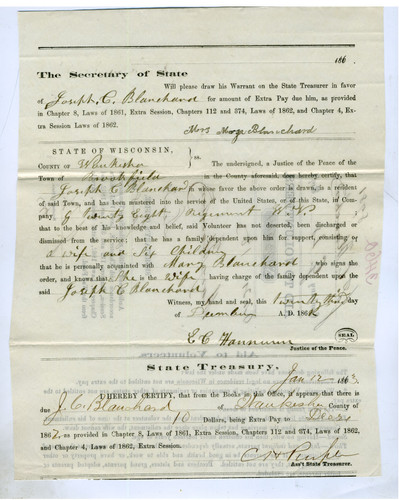 186 .
The Secretary of State
Will please draw his Warrant on the State Treasurer in favor
of Joseph. C. Blanchard for amount of Extra Pay due him, as provided
in Chapter 8, Laws of 1861, Extra Session, Chapters 112 and 374, Laws of 1862, and Chapter 4, Ex-
tra Session Laws of 1862.
Mary Blanchard
STATE OF WISCONSIN, } ss.
COUNTY OF Waukesha The undersigned, a Justice of the Peace of the
Town of Brookfield in the County aforesaid, does hereby certify, that
Joseph C Blanchard in whose favor the above order is drawn, is a resident
of said Town, and has been mustered into the service of the United States, or of this State, in Com-
pany G Twenty Eight Regiment W. V. ;
that to the best of his knowledge and belief, said Volunteer has not deserted, been discharged or
dismissed from the service; that he has a family dependent upon him for support, consisting of
a Wife and Six Children
that he is personally acquainted with Mary Blanchard who signs the
order, and knows that She is the Wife having charge of the family dependent upon the
said Joseph C Blanchard
Witness, my hand and seal, this day
of December A. D. 1862
E. C. Hannum SEAL
Justice of the Peace.
State Treasury, Jan 12 1863.
I HEREBY CERTIFY, that from the Books in this Office, it appears, that there is
due J. C. Blanchard of Waukesha County of
10 Dollars, being Extra Pay to Dec 31
1862, as provided in Chapter 8, Laws of 1861, Extra Session, Chapters 112 and 374, Laws of 1862,
and Chapter 4, Laws of 1862, Extra Session.
Ass't State Treasurer.